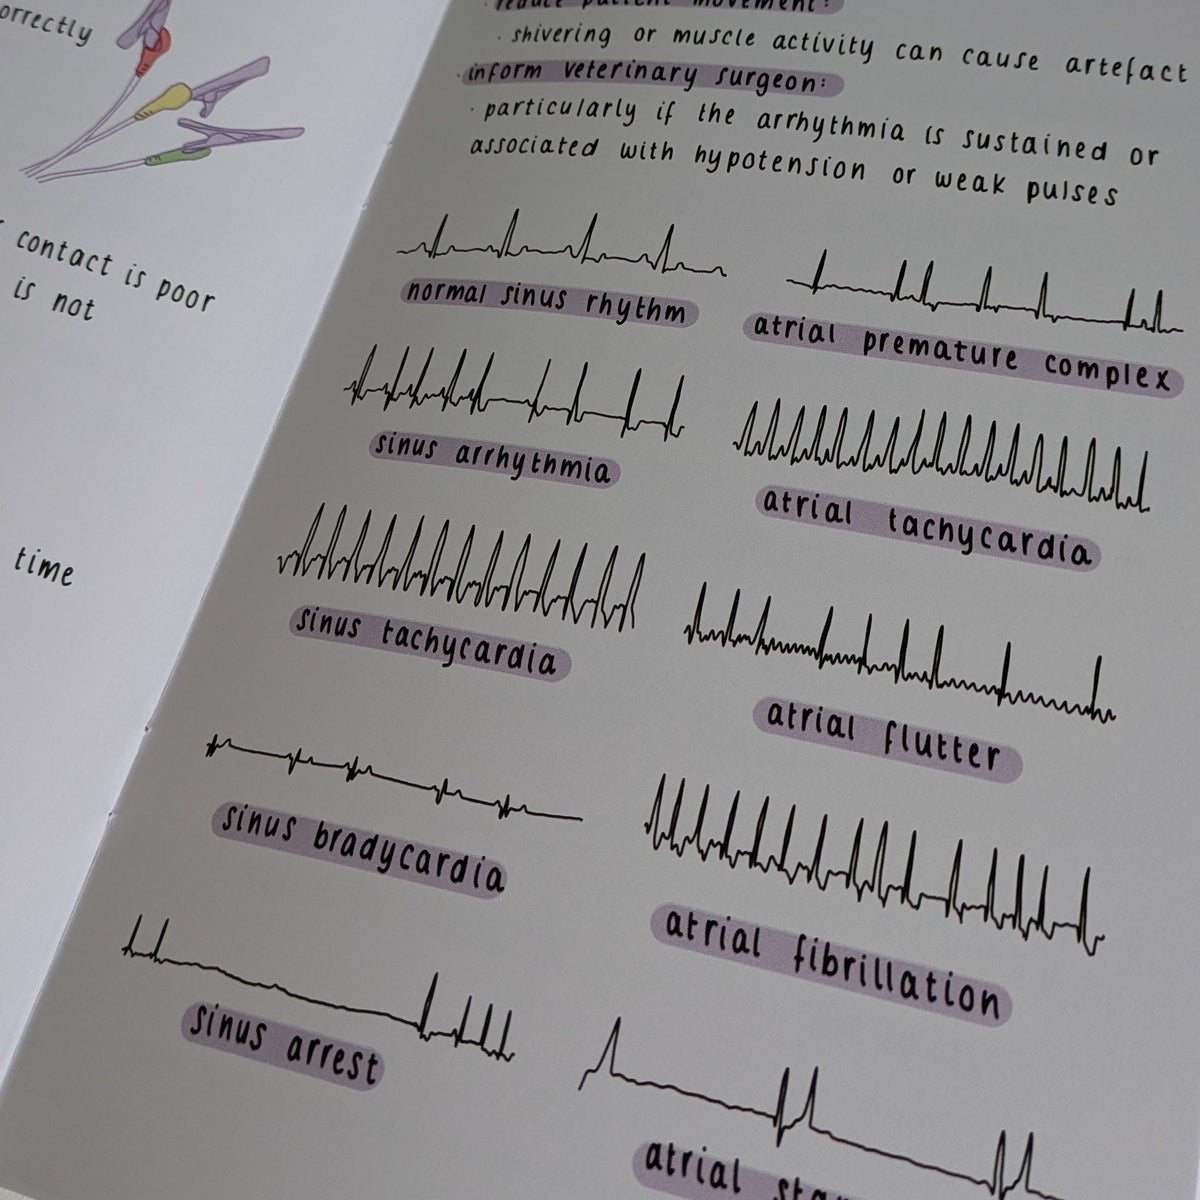 orrectly
contact is poor
is not
time
reduce patient movement:
· shivering or muscle activity can cause artefact
· inform veterinary surgeon:
· particularly if the arrhythmia is sustained or
associated with hypotension or weak pulses
normal sinus rhythm
atrial premature complex
sinus arrhythmia
atrial tachycardia
sinus tachycardia
atrial flutter
sinus bradycardia
atrial fibrillation
sinus arrest
atrial